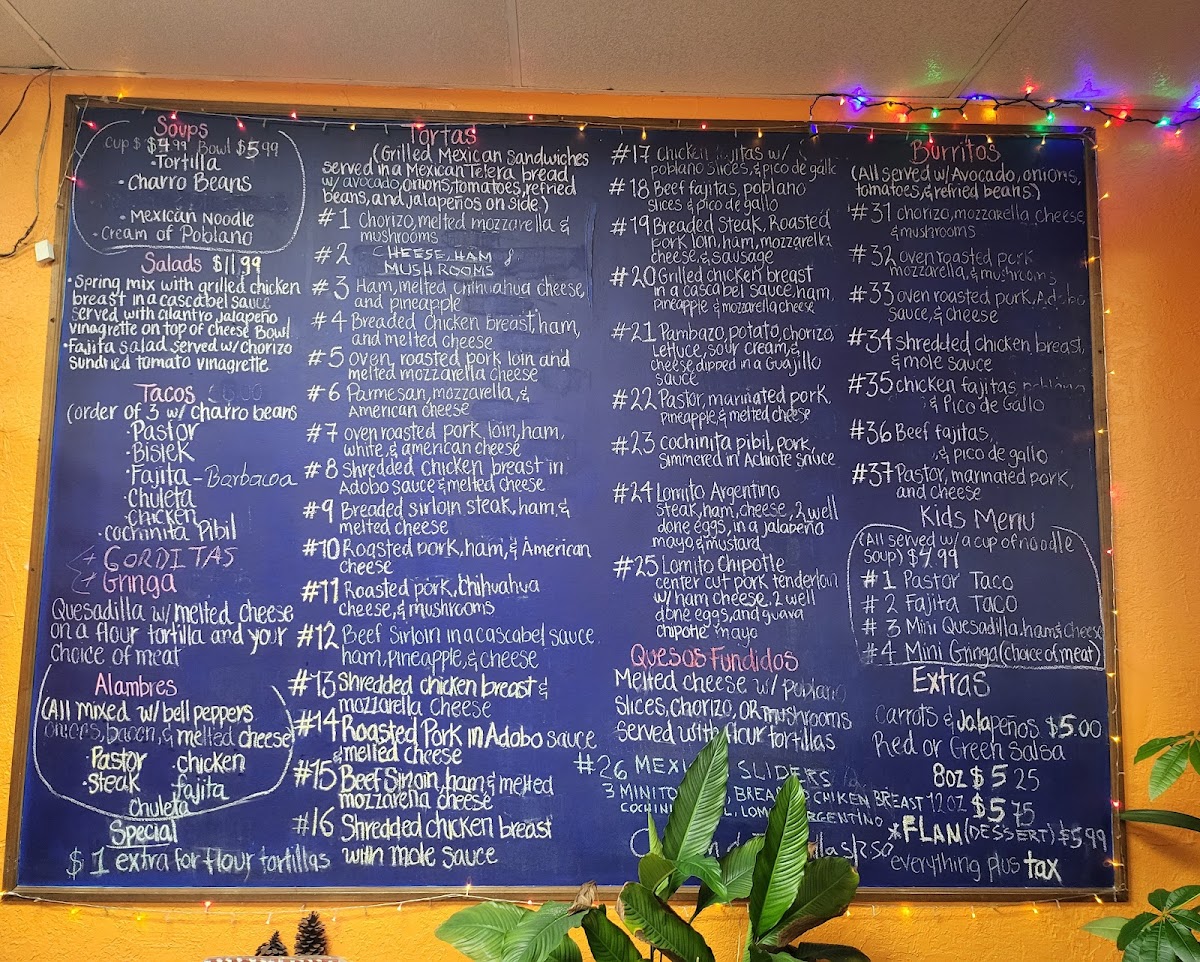 Soups
Cup $ $4.99 Bowl $5.99
·Tortilla
·Charro Beans
·Mexican Noodle
·Cream of Poblano
Salads $11.99
·Spring mix with grilled chicken
breast in a cascabel sauce
served with cilantro, jalapeño
vinagrette on top of cheese Bowl
·Fajita salad served w/ chorizo
sundried tomato vinagrette
Tacos
(order of 3 w/ charro beans
·Pastor
·Bistek
·Fajita - Barbacoa
·Chuleta
·Chicken
·cochinita Pibil
GORDITAS
Gringa
Quesadilla w/ melted cheese
on a flour tortilla and your
choice of meat
Alambres
(All mixed w/ bell peppers
onions, bacon, & melted cheese)
·Pastor ·chicken
·Steak ·fajita
Chuleta
Special
$1 extra for flour tortillas
Tortas
(Grilled Mexican Sandwiches
served in a Mexican Telera bread,
w/ avocado, onions, tomatoes, refried
beans, and jalapeños on side.)
#1 Chorizo, melted mozzarella &
mushrooms
#2 CHEESE, HAM &
MUSHROOMS
#3 Ham, melted chihuahua cheese
and pineapple
#4 Breaded Chicken breast, ham,
and melted cheese
#5 oven, roasted pork loin and
melted mozzarella cheese
#6 Parmesan, mozzarella, &
American cheese
#7 oven roasted pork loin, ham,
white, & american cheese
#8 Shredded chicken breast in
Adobo sauce & melted cheese
#9 Breaded sirloin steak, ham, &
melted cheese
#10 Roasted pork, ham, & American
cheese
#11 Roasted pork, chihuahua
cheese, & mushrooms
#12 Beef Sirloin in a cascabel sauce
ham, pineapple, & cheese
#13 Shredded chicken breast &
mozzarella cheese
#14 Roasted Pork in Adobo sauce
& melted cheese
#15 Beef Sirloin, ham, & melted
mozzarella cheese
#16 Shredded chicken breast
with mole sauce
#17 Chicken fajitas w/
poblano slices, & pico de gallo
#18 Beef fajitas, poblano
slices & pico de gallo
#19 Breaded Steak, Roasted
pork loin, ham, mozzarella
cheese, & sausage
#20 Grilled chicken breast
in a cascabel sauce, ham,
pineapple & mozzarella cheese
#21 Pambazo, potato, chorizo,
Lettuce, sour cream, &
cheese, dipped in a Guajillo
sauce
#22 Pastor, marinated pork,
pineapple, & melted cheese
#23 cochinita pibil, pork,
simmered in Achiote sauce
#24 Lomito Argentino
steak, ham, cheese, 2 well
done eggs, in a jalapeño
mayo & mustard
#25 Lomito Chipotle
center cut pork tenderloin
w/ ham cheese, 2 well
done eggs, and guava
chipotle mayo
Quesos Fundidos
Melted cheese w/ poblano
Slices, chorizo, OR mushrooms
Served with flour tortillas
#26 MEXICAN SLIDERS
3 MINI CHIKEN BREAST
COCHINI ARGENTINO
Burritos
(All served w/ Avocado, onions,
tomatoes, & refried beans)
#31 chorizo, mozzarella cheese
& mushrooms
#32 oven roasted pork
mozzarella, & mushrooms
#33 oven roasted pork, Adobo
sauce, & cheese
#34 shredded chicken breast,
& mole sauce
#35 chicken fajitas, poblano
& Pico de Gallo
#36 Beef fajitas,
& pico de gallo
#37 Pastor, marinated pork,
and cheese
Kids Menu
(All served w/ a cup of noodle
soup) $7.99
#1 Pastor Taco
#2 Fajita Taco
#3 Mini Quesadilla, ham & cheese
#4 Mini Gringa (choice of meat)
Extras
Carrots & Jalapeños $5.00
Red or Green Salsa
8oz $5 25
12 OZ $5 75
*FLAN (DESSERT) $5.99
everything plus tax